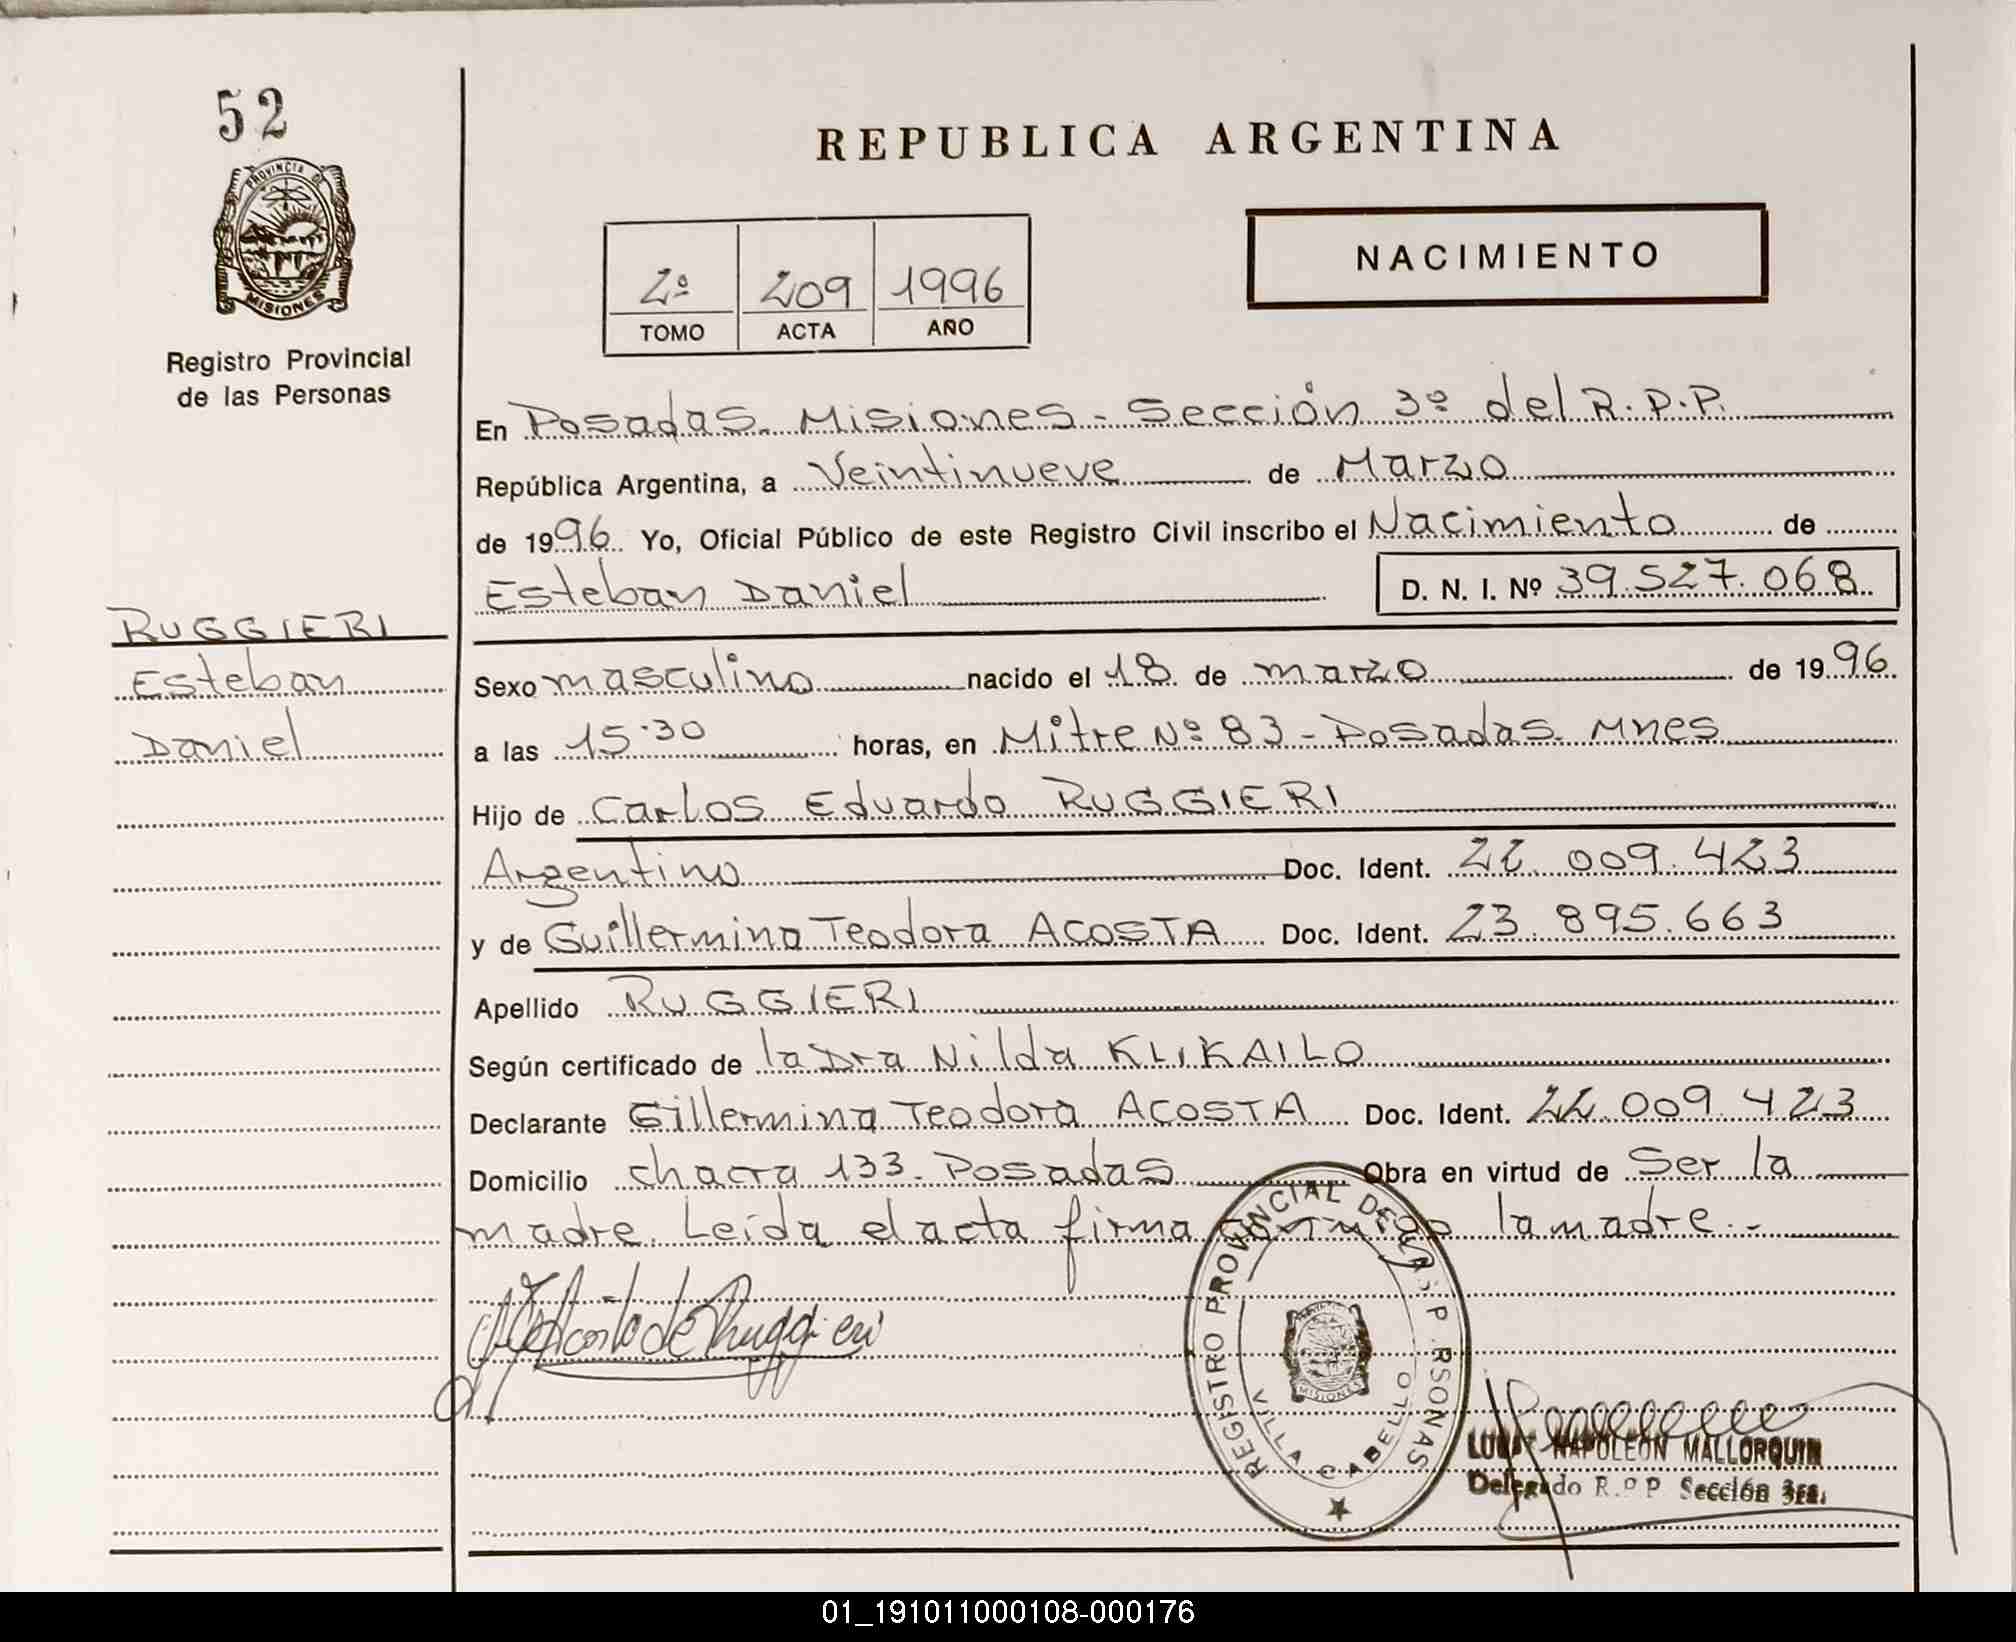 52
PROVINCIA DE
MISIONES
Registro Provincial
de las Personas
REPUBLICA ARGENTINA
2º 209 1996
TOMO ACTA AÑO
NACIMIENTO
En Posadas. Misiones - Sección 3º del R.P.P.
República Argentina, a Veintinueve de Marzo
de 1996 Yo, Oficial Público de este Registro Civil inscribo el Nacimiento de
Esteban Daniel D. N. I. Nº 39.527.068
RUGGIERI
Esteban
Daniel
Sexo masculino nacido el 18 de marzo de 1996
a las 15:30 horas, en Mitre Nº 83 - Posadas. Mnes
Hijo de Carlos Eduardo RUGGIERI
Argentino Doc. Ident. 22.009.423
y de Guillermina Teodora ACOSTA Doc. Ident. 23.895.663
Apellido RUGGIERI
Según certificado de la Dra Nilda KLIKAILO
Declarante Gillermina Teodora ACOSTA Doc. Ident. 22.009.423
Domicilio chacra 133. Posadas Obra en virtud de Ser la
madre. Leída el acta firma conmigo la madre.-
Acosta de Ruggieri
REGISTRO PROVINCIAL DE LAS P RSONAS
MISIONES
VILLA CABELLO
NAPOLEON MALLORQUIN
Delegado R.P.P Sección 3ra.
01_191011000108-000176